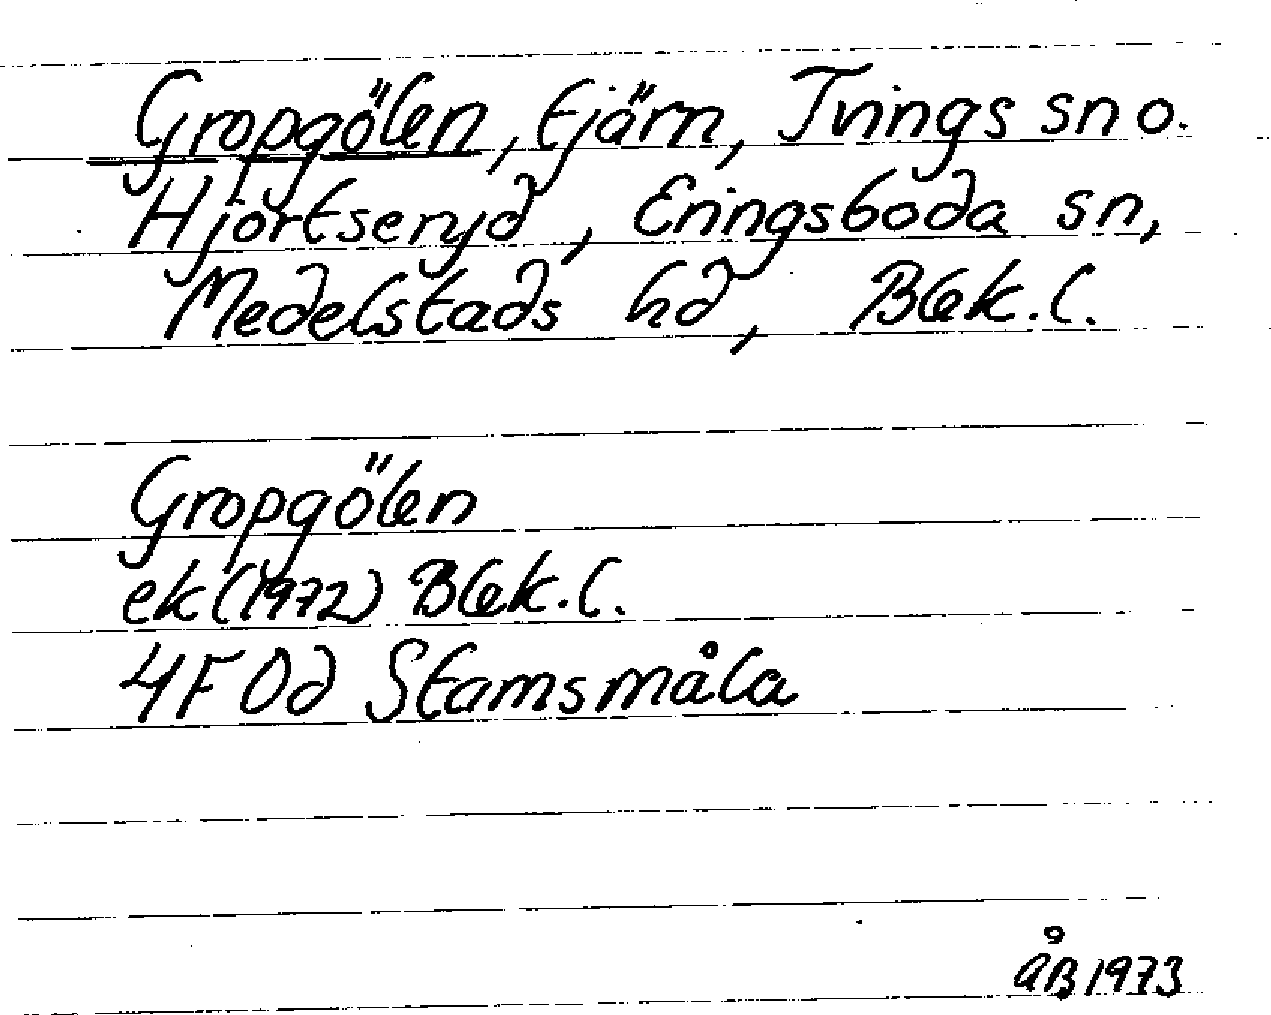 Gropgölen, tjärn, Tvings sn o.
Hjortseryd, Eringsboda sn,
Medelstads hd, Blek.l.
Gropgölen
ek (1972) Blek.l.
4F0d Stamsmåla
åB 1973